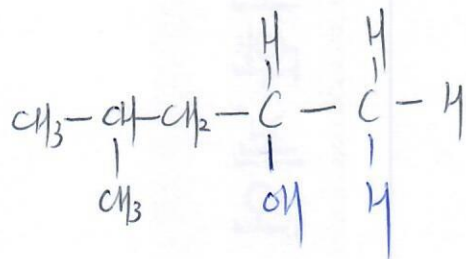 H H
CH3-CH-CH2-C-C-H
CH3 OH H